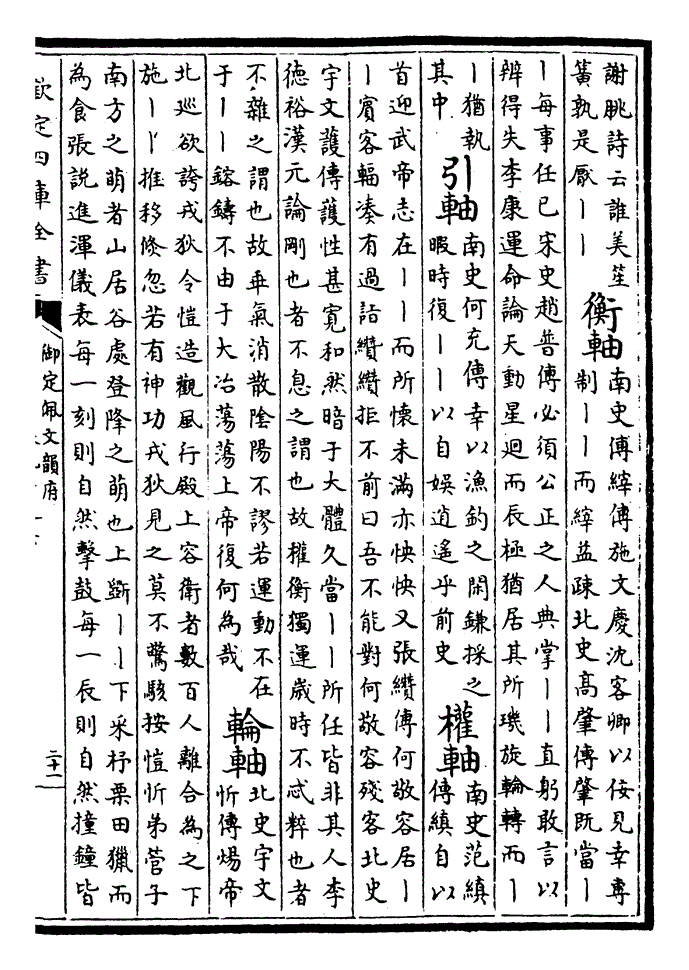 謝眺詩云誰美笙
簧孰是厭丨丨
衡軸
南史傅縡傳施文慶沈客卿以佞見幸專
制丨丨而縡益疎北史高肇傳肇既當丨
丨每事任已宋史趙普傳必須公正之人典掌丨丨直躬敢言以
辨得失李康運命論天動星迴而辰極猶居其所璣旋輪轉而丨
丨猶執
其中
引軸
南史何充傳幸以漁釣之閑鎌採之
暇時復丨丨以自娛逍遙乎前史
權軸
南史范縝
傳縝自以
首迎武帝志在丨丨而所懷未滿亦怏怏又張纘傳何敬容居丨
丨賓客輻凑有過詣纘纘拒不前曰吾不能對何敬容殘客北史
宇文護傳護性甚寛和然暗于大體久當丨丨所任皆非其人李
德裕漢元論剛也者不息之謂也故權衡獨運歲時不忒粹也者
不雜之謂也故乖氣消散陰陽不謬若運動不在
于丨丨鎔鑄不由于大冶蕩蕩上帝復何為哉
輪軸
北史宇文
忻傳煬帝
北廵欲誇戎狄令愷造觀風行殿上容衛者數百人離合為之下
施丨丨推移倏忽若有神功戎狄見之莫不驚駭按愷忻弟管子
南方之萌者山居谷處登降之萌也上斷丨丨下采杼栗田獵而
為食張說進渾儀表每一刻則自然擊鼓每一辰則自然撞鐘皆
欽定四庫全書
御定佩文韻府
二十一